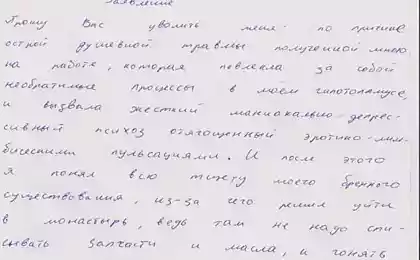 Заявление
Прошу Вас уволить меня по причине
острой душевной травмы полученной мною
на работе, которая повлекла за собой
необратимые процессы в моём гипоталамусе,
и вызвала жесткий маниакально-депрес-
сивный психоз отягощенный эротико-лим-
бическими пульсациями. И после этого
я понял всю тщету моего бренного
существования, из-за чего решил уйти
в монастырь, ведь там не надо спи-
сывать запчасти и масла, и гонять